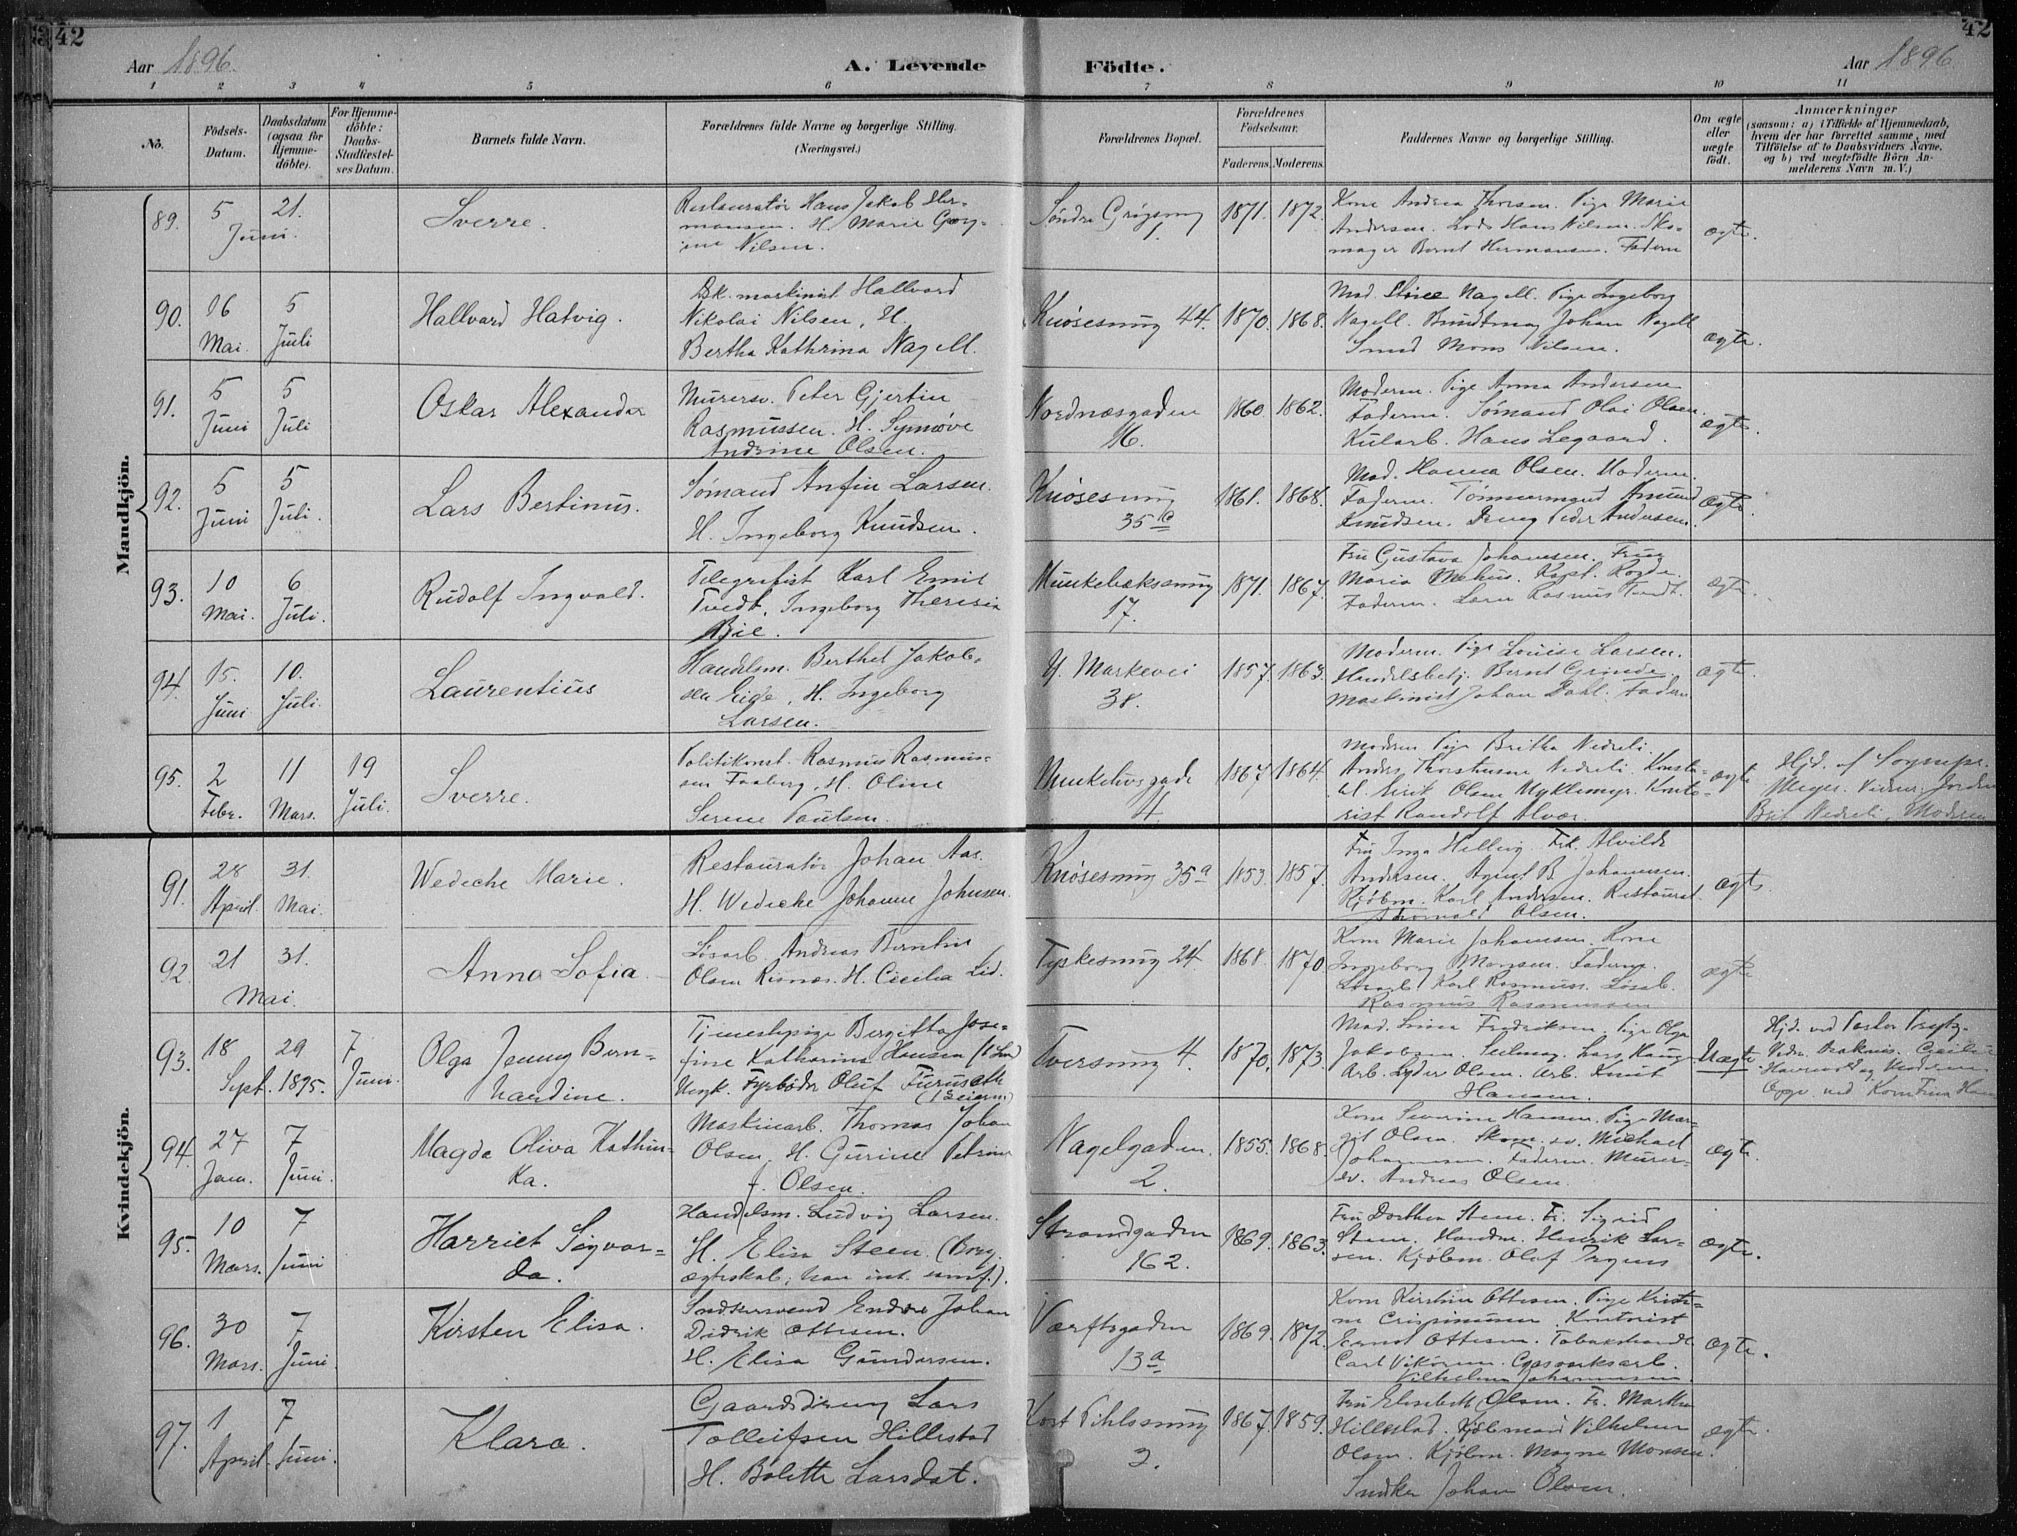 42
42
Aar 1896.
A. Levende
Födte.
Aar 1896
1 2 3 4 5 6 7 8 9 10 11
No.
Födsels-
Datum.
Daabsdatum
(ogsaa for
Hjemme-
döbte).
For Hjemme-
döbte:
Daabs-
Stadfæstel-
ses Datum.
Barnets fulde Navn.
Forældrenes fulde Navne og borgerlige Stilling.
(Næringsvei.)
Forældrenes Bopæl.
Forældrenes
Födselsaar.
Faderens. Moderens.
Faddernes Navne og borgerlige Stilling.
Om ægte
eller
uægte
födt.
Anmærkninger
(saasom: a) i Tilfælde af Hjemmedaab,
hvem der har forrettet samme, med
Tilföielse af to Daabsvidners Navne,
og b) ved uægtefödte Börn An-
melderens Navn m. V.)
Mandkjön.
89.
5
Juni.
21.
Sverre.
Restauratør Hans Jakob Her-
mansen. H. Marie Georg-
ine Nilsen.
Søndre
1.
1871. 1872.
Kone Andrea Thorsen. Pige Marie
Andersen. Lods Hans Nilsen. Sko-
mager Bernt Hermansen. Faderen
ægte.
90.
16
Mai.
5
Juli
Hallvard Hatvig.
maskinist Hallvard
Nikolai Nilsen, H.
Bertha Kathrina Nagell.
Knøsesmug 44.
1870. 1868.
Mad. Nagell. Pige Ingeborg
Nagell. Johan Nagell
Smed Mons Nilsen.
ægte.
91.
5
Juni
5
Juli
Oskar Alexander
Murersv. Peter Gjertin
Rasmussen. H. Synnøve
Andrine Olsen.
Nordnæsgaden
16.
1860. 1862.
Moderen. Pige Anna Andersen
Faderen. Sømand Olai Olsen.
Kularb. Hans Legaard.
ægte.
92.
5
Juni
5
Juli.
Lars Bertinus.
Sømand Anfin Larsen.
H. Ingeborg Knudsen.
Knøsesmug
35 c
1861. 1868.
Mad. Hanna Olsen. Moderen.
Faderen. Tømmermand Amund
Knudsen. Dreng Peder Andersen.
ægte.
93.
10
Mai.
6
Juli.
Rudolf Ingvald.
Telegrafist Karl Emil
Tvedt, Ingeborg Theresia
Bie.
Munkebæksmug
17.
1871. 1867.
Fru Gustava Johannesen. Frue
Maria Mehus. Kapt. Rogde.
Faderen. Rasmus Tvedt.
ægte.
94.
15.
Juni
10.
Juli.
Laurentius
Handelsm. Berthel Jakob-
sen Eide, H. Ingeborg
Larsen.
Y. Markevei
38.
1857. 1863.
Moderen. Pige Louise Larsen.
Handelsbetj. Bernt Grinde
Maskinist Johan Dahl. Faderen
ægte.
95.
2
Febr.
11
Mars.
19
Juli.
Sverre.
Politikonst. Rasmus Rasmus-
sen Faaberg, H. Oline
Serine Paulsen.
Munkehusgade
4.
1867. 1864.
Moderen Pige Britha Nedreli.
Anders Thorstensen Nedreli. Konsta-
bel Erik Olsen Myklemyr. Konto-
rist Randolf Alvær.
ægte
Hjd. af Sognepr.
Meyer. Vidner. Jordm
Brit Nedreli, Moderen
Kvindekjön.
91.
28
April.
31.
Mai.
Wedeche Marie.
Restauratør Johan Aas.
H. Wedeche Johanne Johnsen.
Knøsesmug 35 a
1853. 1857.
Fru Inga Helling. Frk. Alvilde
Andersen. Agent B. Johannesen.
Kjøbm. Karl Andersen. Restaurat.
Thorvald Olsen.
ægte.
92.
21
31.
Mai.
Anna Sofia.
Løsarb. Andreas Berntin
Olsen Risnæs. H. Cecilia Lid.
Tyskesmug 24.
1868. 1870
Kone Marie Johannesen. Kone
Ingeborg Monsen. Faderen.
Løsarb. Karl Rasmuss. Løsarb.
Rasmus Rasmussen
ægte.
93.
18
Sept.
29
1895.
7
Juni.
Olga Jenny Bern-
hardine.
Tjenestepige Bergitta Jose-
fine Katharina Hansen
Ungk. Fyrbøder Oluf Furuseth
Tversmug 4.
1870. 1873.
Mad. Lovise Fredriksen. Pige Olga
Jakobsen. Seilmag. Lars Haug
Arb. Lyder Olsen. Arb. Knut
Hansen.
Uægte
Hjd. ved Pastor
94.
27
Jan.
7
Juni.
Magda Oliva Kathin-
ka.
Maskinarb. Thomas Johan
Olsen. H. Gurine Petrine
f. Olsen.
Nagelgaden.
2.
1855. 1868.
Kone Severine Hansen. Pige Mar-
git Olsen. Skom. sv. Michael
Johannesen. Faderen. Murer-
sv. Andreas Olsen.
ægte.
95.
10
Mars.
7
Juni
Harriet Sigvar-
da.
Handelsm. Ludvig Larsen.
H. Elisa Steen. (Borg.
ægteskab; han int. samf.).
Strandgaden
162.
1869. 1863.
Fru Dorthea Steen. Fr. Sigrid
Steen. Handelsm. Henrik Lar-
sen. Kjøbm. Olaf
ægte.
96.
30
Mars.
7
Juni.
Kirsten Elisa.
Snedkersvend Endre Johan
Didrik Ottesen.
H. Elisa Gundersen.
Værftsgaden
13 a
1869. 1872.
Kone Kirstine Ottesen. Pige Kristi-
ne Crispinusen. Kontorist
Ernst Ottesen. Tobakshandl.
Carl Vikøren. Gasværksarb.
Vilhelm Johannesen.
ægte.
97.
1
April.
7
Juni.
Klara.
Gaardsdreng Lars
Tolleifsen Hillestad
H. Bolette Larsdat.
Kort Pihlssmug
3.
1867. 1859.
Fru Elisabeth Olsen. Fr. Martha
Hillestad. Kjøbmand Vilhelm
Olsen. Kjøbm. Magne Monsen.
Snedker Johan Olsen.
ægte.